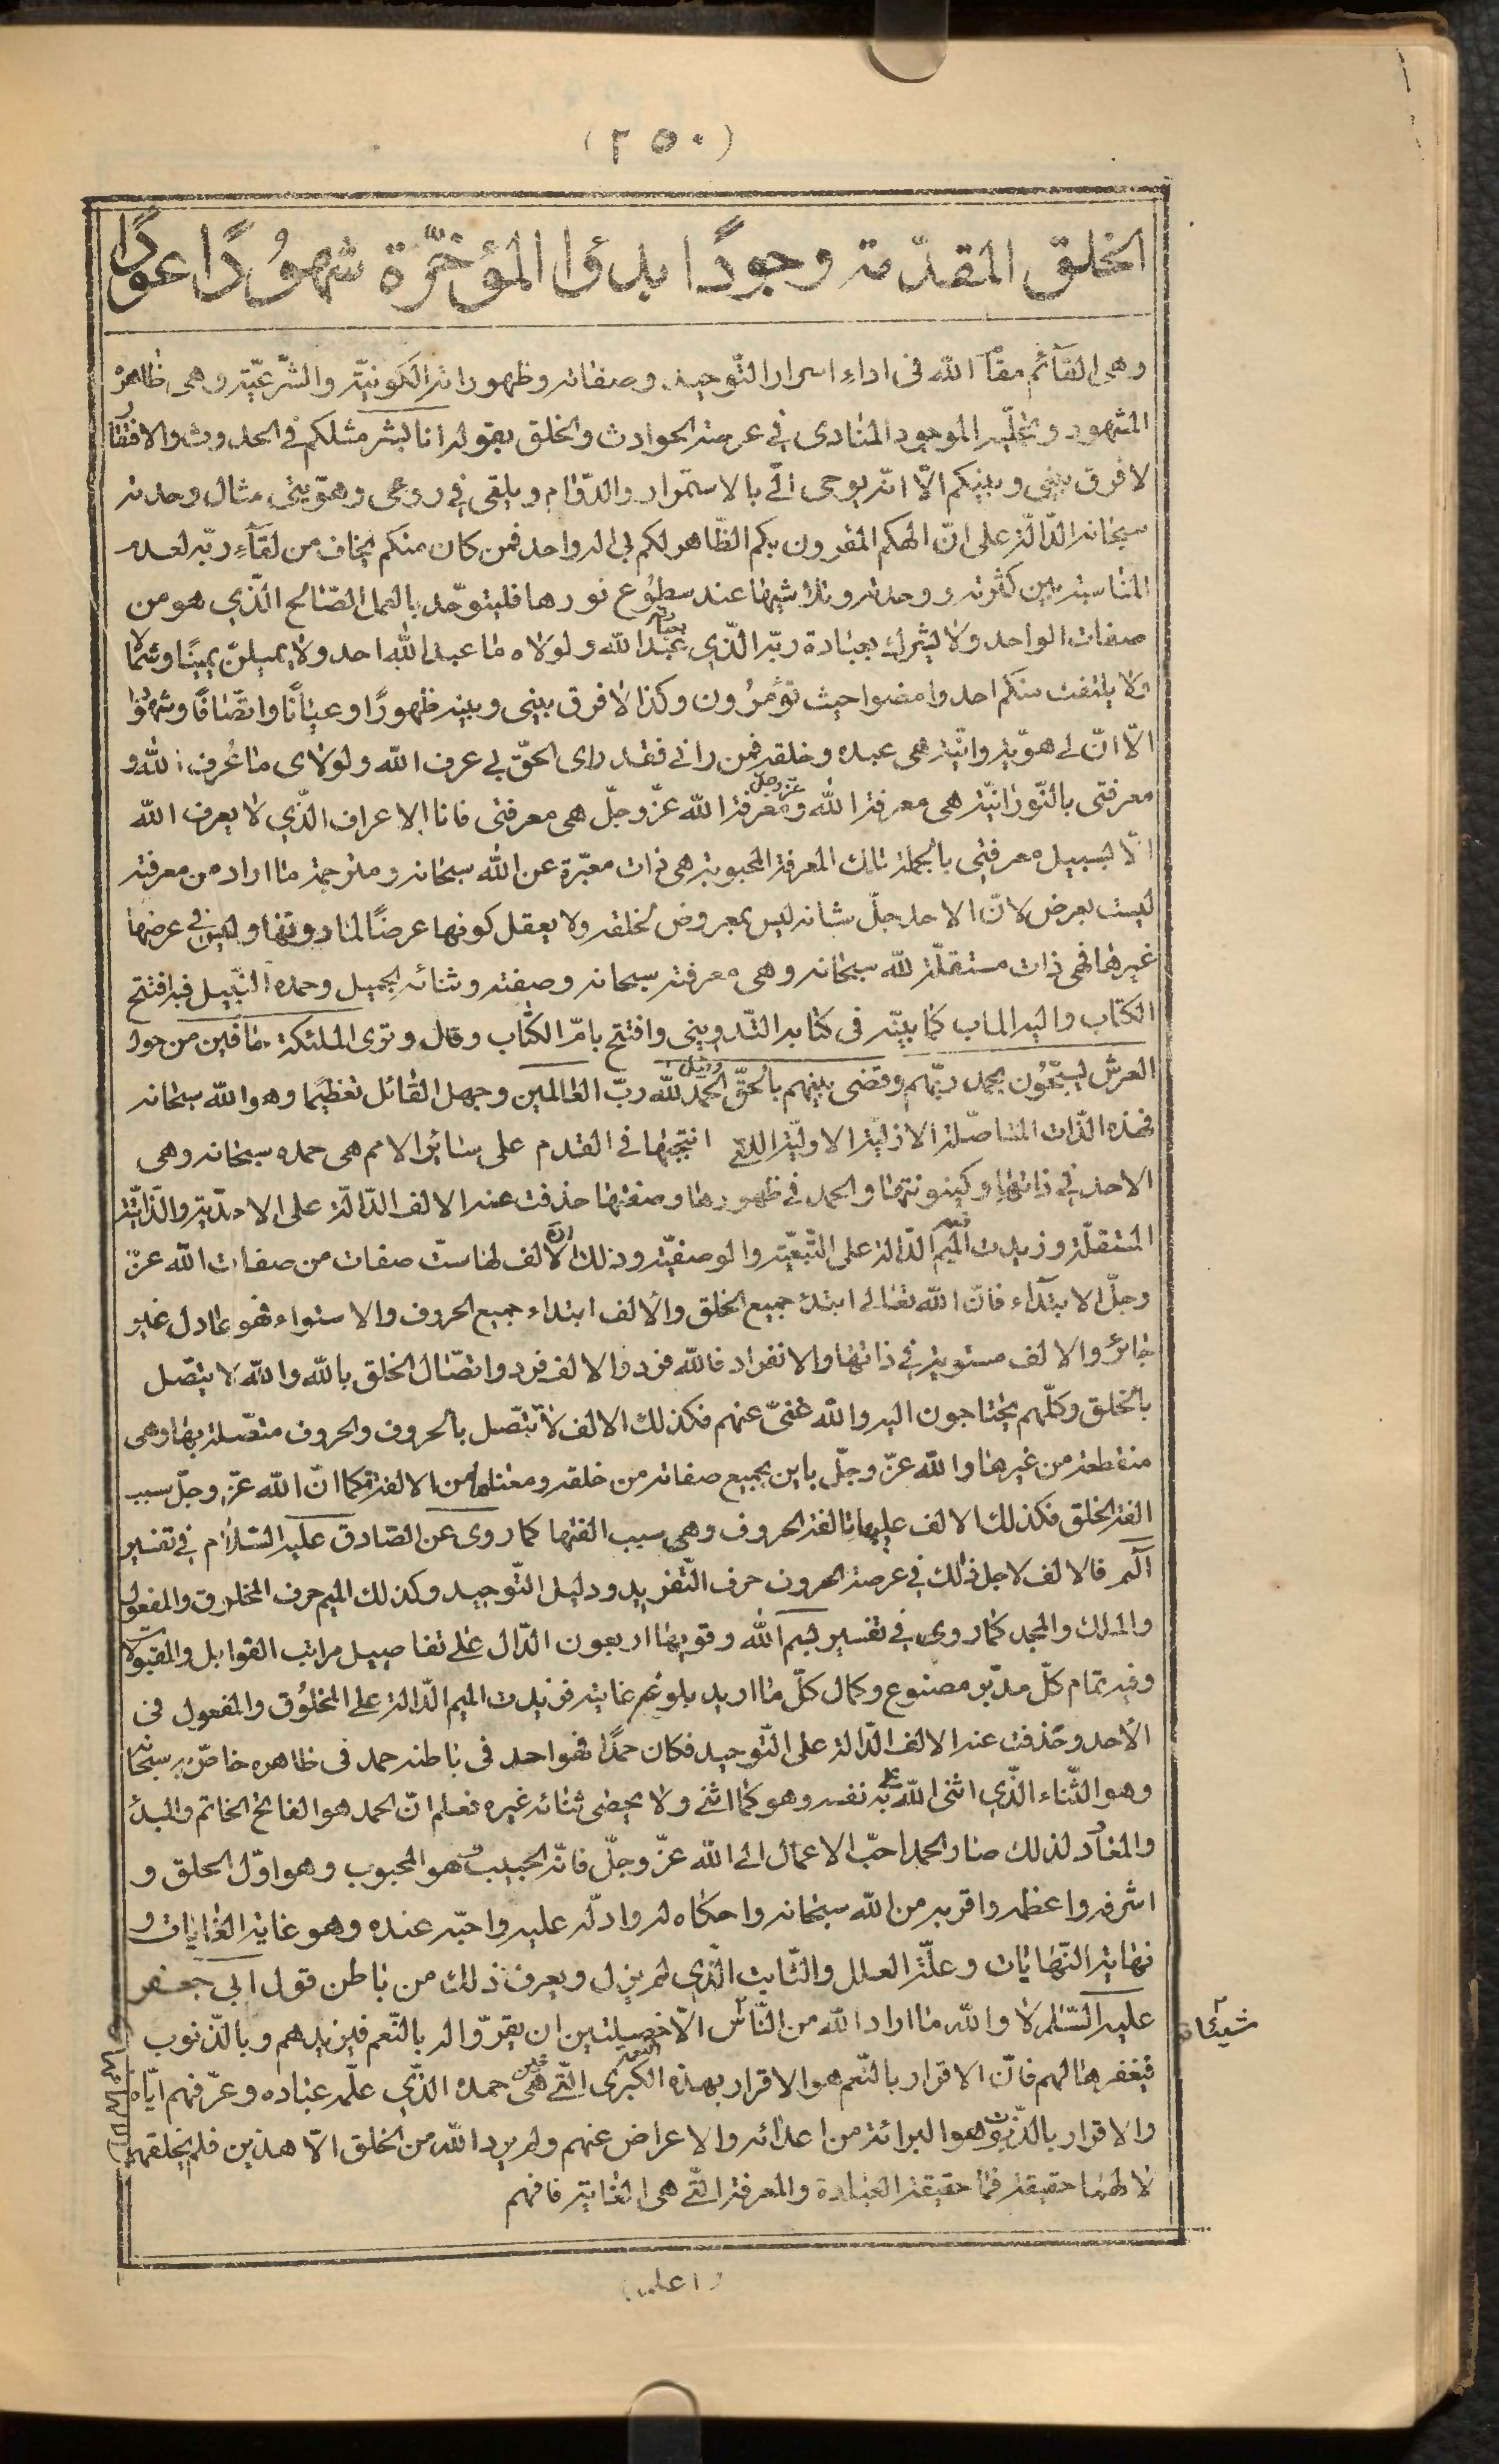 (٢٥٠)
الخلق المقدّمة وجودًا بدءًا المؤخّرة شهُودًا عودًا
وهى القآئم مقام الله فى اداء اسرار التّوحيد وصفاته وظهوراته الكونيّة والشّرعيّة وهى ظاهرة
المشهود وتجلّيه الموجود المنادى فى عرصة الحوادث والخلق بقوله انا بشر مثلكم فى الحدوث والافتقار
لا فرق بينى وبينكم الّا انّه يوحى الىّ بالاستمرار والدّوام ويلقى فى روعى وهويّتى مثال وحدته
سبحانه الدّالّة على انّ الهكم المقرون بكم الظّاهر لكم بى اله واحد فمن كان منكم يخاف من لقآء ربّه لعدم
المناسبة بين كثرته ووحدته وتلاشيها عند سطوع نورها فليتوجّه بالعمل الصّالح الّذى هو من
صفات الواحد ولا يشرك بعبادة ربّه الّذى بعبادته عبد الله ولولاه ما عبد الله احد ولا يميلنّ يمينًا وشمالا
ولا يلتفت منكم احد وامضوا حيث تؤمرُون وكذا لا فرق بينى وبينه ظهورًا وعيانًا واتّصافًا وشهودا
الّا انّ لى هويّة وانّيّة هى عبده وخلقه فمن رانى فقد راى الحقّ بى عرف الله ولولاى ما عُرف الله و
معرفتى بالنّورانيّة هى معرفة الله عزّ وجلّ ومعرفة الله عزّ وجلّ هى معرفتى فانا الاعراف الّذى لا يعرف الله
الّا بسبيل معرفتى بالجملة تلك المعرفة المحبوبة هى ذات معبّرة عن الله سبحانه ومترجمة ما اراد من معرفته
ليست بعرض لانّ الاحد جلّ شانه ليس بمعروض لخلقه ولا يعقل كونها عرضًا لما دونها وليس فى عرضها
غيرها فهى ذات مستقلّة لله سبحانه وهى معرفته سبحانه وصفته وثنائه الجميل وحمده النّبيل فبه افتتح
الكتاب واليه الماب كما بيّنه فى كتابه التّدوينى وافتتح بامّ الكتاب وقال وترى الملئكة حافين من حول
العرش يسبّحُون بحمد ربّهم وقضى بينهم بالحقّ وقيل الحمد لله ربّ العالمين وجهل القائل تعظيمًا وهو الله سبحانه
فهذه الذّات المتاصّلة الازليّة الاوليّة اللتى انتجبها فى القدم على سائر الامم هى حمده سبحانه وهى
الاحد فى ذاتها وكينونتها والحمد فى ظهورها وصفتها حذفت عنه الالف الدّالّة على الاحديّة والذّاتيّة
المستقلّة وزيدت فيه الميم الدّالة على التّبعيّة والوصفيّة وذلك انّ الالف لها ستّ صفات من صفات الله عزّ
وجلّ الابتدآء فانّ الله تعالى ابتدء جميع الخلق والالف ابتداء جميع الحروف والاستواء فهو عادل غير
جائر والالف مستوية فى ذاتها والانفراد فالله فرد والالف فرد واتصّال الخلق بالله والله لا يتصّل
بالخلق وكلّهم يحتاجون اليه والله غنىّ عنهم فكذلك الالف لا تتصّل بالحروف والحروف متصّلة بها وهى
منقطعة من غيرها والله عزّ وجلّ باين بجميع صفاته من خلقه ومعناها من الالفة فكما انّ الله عزّ وجلّ سبب
الفة الخلق فكذلك الالف عليها تالفة الحروف وهى سبب الفتها كما روى عن الصّادق عليه السّلام فى تفسير
الٓمٓ فالالف لاجل ذلك فى عرصة الحروف حرف التّفريد ودليل التّوحيد وكذلك الميم حرف المخلوق والمفعول
والملك والمجد كما روى فى تفسير بسم الله وقويها اربعون الدّال على تفاصيل مراتب القوابل والمقبولات
وفيه تمام كلّ مدبّر مصنوع وكمال كلّ ما اريد بلوغه غايته فزيدت الميم الدّالة على المخلوق والمفعول فى
الأحد وحُذفت عنه الالف الدّالة على التّوحيد فكان حمدًا فهو احد فى باطنه حمد فى ظاهره خاصّ به سبحانه
وهو الثّناء الّذى اثنى الله به على نفسه وهو كما اثنى ولا يحصى ثنائه غيره فعلم انّ الحمد هو الفاتح الخاتم والمبدء
والمعاد ولذلك صار الحمد احبّ الاعمال الى الله عزّ وجلّ فانّه الحبيب وهو المحبوب وهو اوّل الخلق و
اشرفه واعظمه واقربه من الله سبحانه واحكاه له وادلّه عليه واحبّه عنده وهو غاية الغايات و
نهاية النّهايات وعلّة العلل والثّابت الّذى لم يزل ويعرف ذلك من باطن قول ابى جعفر
عليه السّلم لا والله ما اراد الله من النّاس الّا خصلتين ان يقرّوا له بالنّعم فيزيدهم وبالذّنوب
فيغفرها لهم فانّ الاقرار بالنّعم هو الاقرار بهذه النعمة الكبرى الّتى هى حمده الّذى علّمه عباده وعرّفهم ايّاه
والاقرار بالذّنوب هو البرائة من اعدائه والاعراض عنهم ولم يرد الله من الخلق الّا هذين فلم يخلقهم
لا لهما حقيقة فهما حقيقة العبادة والمعرفة الّتى هى الغاية فافهم